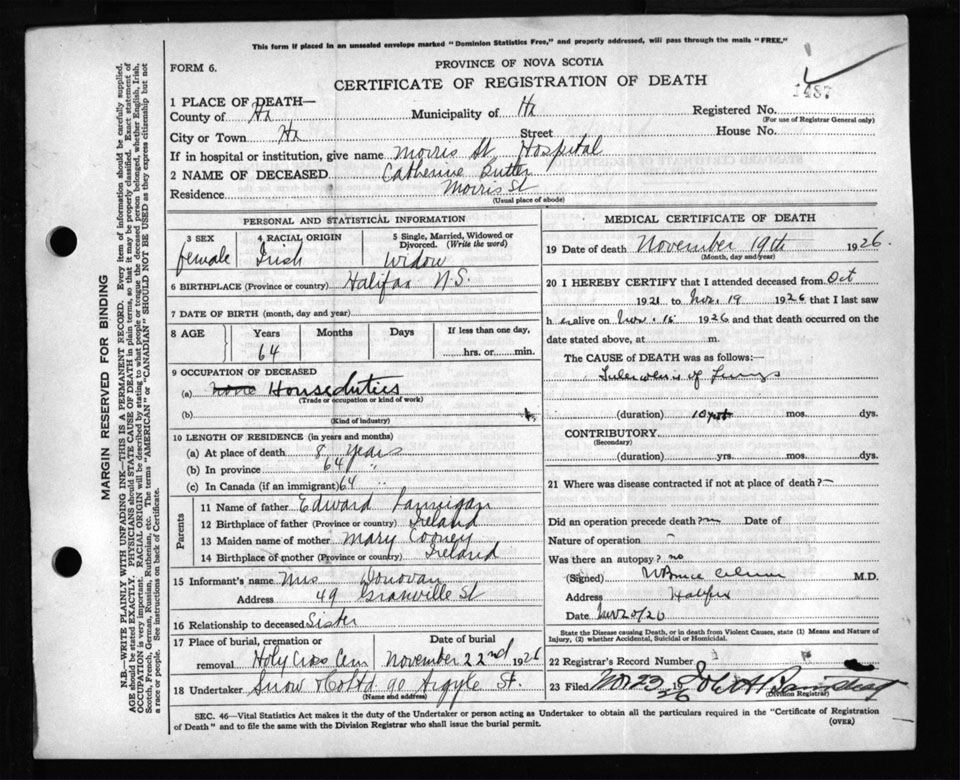 This form if placed in an unsealed envelope marked "Dominion Statistics Free," and properly addressed, will pass through the mails "FREE."
FORM 6.
PROVINCE OF NOVA SCOTIA
CERTIFICATE OF REGISTRATION OF DEATH
1487
1 PLACE OF DEATH—
County of Hx Municipality of Hx Registered No.
(For use of Registrar General only)
City or Town Hx Street House No.
If in hospital or institution, give name Morris St Hospital
2 NAME OF DECEASED Catherine Butler
Residence Morris St
(Usual place of abode)
PERSONAL AND STATISTICAL INFORMATION
3 SEX 4 RACIAL ORIGIN 5 Single, Married, Widowed or Divorced. (Write the word)
female Irish Widow
6 BIRTHPLACE (Province or country) Halifax N.S.
7 DATE OF BIRTH (month, day and year)
8 AGE Years Months Days If less than one day,
64 hrs. or min.
9 OCCUPATION OF DECEASED
(a) none House duties
(Trade or occupation or kind of work)
(b)
(Kind of industry)
10 LENGTH OF RESIDENCE (in years and months)
(a) At place of death 8 years
(b) In province 64 "
(c) In Canada (if an immigrant) 64 "
Parents
11 Name of father Edward Lannigan
12 Birthplace of father (Province or country) Ireland
13 Maiden name of mother Mary Cooney
14 Birthplace of mother (Province or country) Ireland
15 Informant's name Mrs Donovan
Address 49 Granville St
16 Relationship to deceased Sister
17 Place of burial, cremation or removal Holy Cross Cem Date of burial November 22nd 1926
18 Undertaker Snow & Co Ltd 90 Argyle St.
(Name and address)
MEDICAL CERTIFICATE OF DEATH
19 Date of death November 19th 1926.
(Month, day and year)
20 I HEREBY CERTIFY that I attended deceased from Oct
1921 to Nov. 19 1926 that I last saw
her alive on Nov. 15 1926 and that death occurred on the
date stated above, at m.
The CAUSE of DEATH was as follows:
Tuberculosis of Lungs
(duration) 10 yrs. mos. dys.
CONTRIBUTORY
(Secondary)
(duration) yrs. mos. dys.
21 Where was disease contracted if not at place of death? —
Did an operation precede death? no Date of
Nature of operation —
Was there an autopsy? no
(Signed) M.D.
Address Halifax
Date Nov 20/26
State the Disease causing Death, or in death from Violent Causes, state (1) Means and Nature of Injury, (2) whether Accidental, Suicidal or Homicidal.
22 Registrar's Record Number
23 Filed Nov 23 26
(Division Registrar)
SEC. 46—Vital Statistics Act makes it the duty of the Undertaker or person acting as Undertaker to obtain all the particulars required in the "Certificate of Registration
of Death" and to file the same with the Division Registrar who shall issue the burial permit.
(OVER)
MARGIN RESERVED FOR BINDING
N.B.—WRITE PLAINLY WITH UNFADING INK—THIS IS A PERMANENT RECORD. Every item of information should be carefully supplied.
AGE should be stated EXACTLY. PHYSICIANS should STATE CAUSE OF DEATH in plain terms, so that it may be properly classified. Exact statement of
OCCUPATION is very important. RACIAL ORIGIN will be described by stating to what people or tongue the deceased person belonged, whether English, Irish,
Scotch, French, German, Russian, Ruthenian, etc. The terms "AMERICAN" or "CANADIAN" SHOULD NOT BE USED as they express citizenship but not
a race or people. See instructions on back of Certificate.